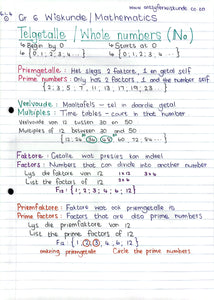 www.easyferwiskunde.co.za
Gr 6 Wiskunde / Mathematics
Telgetalle / Whole numbers (No)
↳ Begin by 0 ↳ Starts at 0
↳ {0, 1, 2, 3, 4, ...} ↳ {0, 1, 2, 3, 4, ...}
Priemgetalle: Het slegs 2 faktore, 1 en getal self
Prime numbers: Only has 2 factors, 1 and the number self
2; 3; 5; 7; 11; 13; 17; 19; 23...
Veelvoude: Maaltafels - tel in daardie getal
Multiples: Time tables - count in that number
Veelvoude van 12 tussen 30 en 50
Multiples of 12 between 30 and 50
{12; 24; 36; 48; 60; 72; 84...}
Faktore: Getalle wat presies kan indeel
Factors: Numbers that can divide into another number
Lys die faktore van 12 1x12 3x4
List the factors of 12
F12 {1; 2; 3; 4; 6; 12}
Priemfaktore: Faktore wat ook priemgetalle is
Prime factors: Factors that are also prime numbers
Lys die priemfaktore van 12
List the prime factors of 12
F12 {1, 2, 3, 4, 6, 12}
omkring priemgetalle Circle the prime numbers